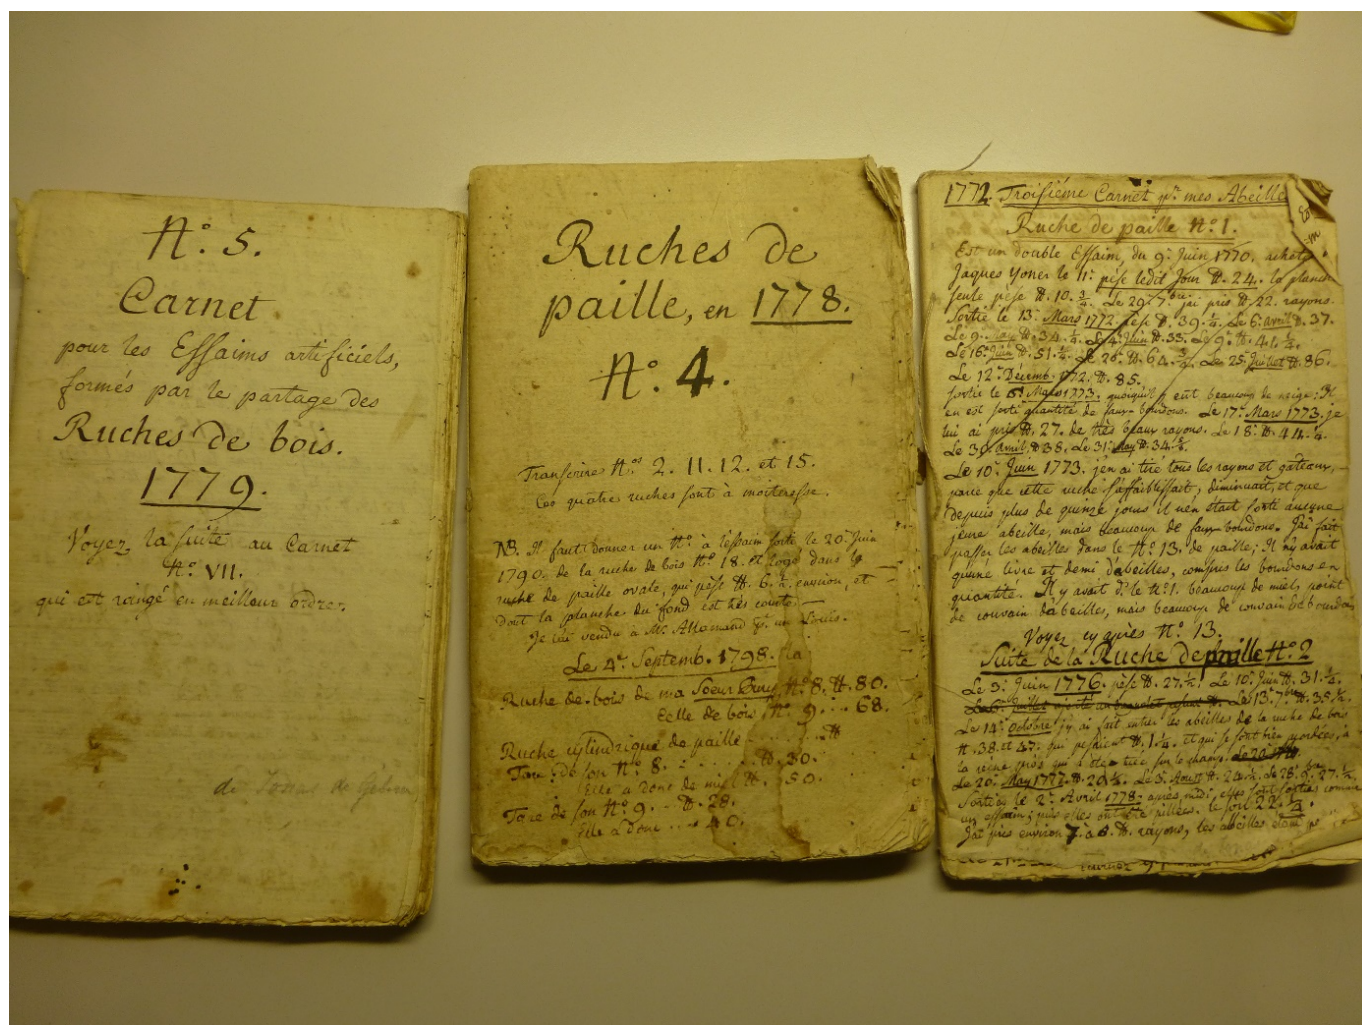 N.° 5.
Carnet
pour les Essaims artificiels,
formés par le partage des
Ruches de bois.
1779.
Voyez la suite au Carnet
N.° VII.
qui est rangé en meilleur ordre.
de Jonas de Gelieu
Ruches de
paille, en 1778.
N.° 4.
Transcrire N.os 2. 11. 12. et 15.
Ces quatre ruches sont à moiteresse.
NB. Il faut donner un N.° à l'essaim sorti le 20. Juin
1790. de la ruche de bois N.° 18. et logé dans la
ruche de paille ovale, qui pèse ℔. 6. ½. environ, et
dont la planche du fond est très courte
Je l'ai vendu à Mr. Allemand p.r un Louis.
Le 4.e Septemb. 1798. la
Ruche de bois de ma Soeur N.° 8. ℔. 80.
Celle de bois N.° 9. .. 68.
Ruche cylindrique de paille ℔
Tare de son N.° 8. ℔. 30.
Elle a donc de miel ℔. 50.
Tare de son N.° 9. ℔. 28.
Elle a donc 40.
1772. Troisiéme Carnet p.r mes Abeille
Ruche de paille N.° 1.
Est un double Essaim, du 9.e Juin 1770. acheté
Jaques Yoner le 11.e pèse ledit jour ℔. 24. la planche
seule pèse ℔. 10. ¾. Le 29. 7.bre j'ai pris ℔. 22. rayons.
Sortie le 13.e Mars 1772. pèse ℔. 39. ¼. Le 6.e avril ℔. 37.
Le 9. may ℔. 34. ¼. Le 4. Juin ℔. 33. Le 9.e ℔. 41. ½.
Le 16.e Juin ℔. 51. ½. Le 26.e ℔. 64. ¾. Le 25. Juillet ℔. 86.
Le 12.e Décemb. 1772. ℔. 85.
Sortie le Mars 1773. quoiqu'il y eût beaucoup de neige: Il
en est sorti quantité de faux-bourdons. Le 17.e Mars 1773. je
lui ai pris ℔. 27. de très beaux rayons. Le 18.e ℔. 44. ¼.
Le 30. avril ℔ 38. Le 31. may ℔. 34.
Le 10.e Juin 1773. j'en ai tiré tous les rayons et gâteaux,
parce que cette ruche s'affaiblissait, diminuait, et que
depuis plus de quinze jours il n'en était sorti aucune
jeune abeille, mais beaucoup de faux bourdons. J'ai fait
passer les abeilles dans le N.° 13. de paille; Il n'y avait
qu'une livre et demi d'abeilles, compris les bourdons en
quantité. Il y avait d.s le N.° 1. beaucoup de miel, point
de couvain d'abeilles, mais beaucoup de couvain de bourdons
Voyez cy après N.° 13.
Suite de la Ruche de paille N.° 2
Le 3.e Juin 1776. pèse ℔. 27. ½. Le 10.e Juin ℔. 31. ¼.
Le 13.e 7.bre ℔. 35. ½.
Le 14.e Octobre j'y ai fait entrer les abeilles de la ruche de bois
N. 38. et 47. qui pesaient ℔. 1. ¼. et qui se sont bien gardées, à
la reine près qui a été tuée sur le champ.
Le 20.e May 1777. ℔. 20. ½. Le 3. Aoust ℔. Le 28. 9.bre 27. ½.
Sorties le 2.e Avril 1778. après midi, elles sont sorties comme
un essaim; puis elles ont été pillées.
J'ai pris environ 7. à 8. ℔. rayons, les abeilles étant